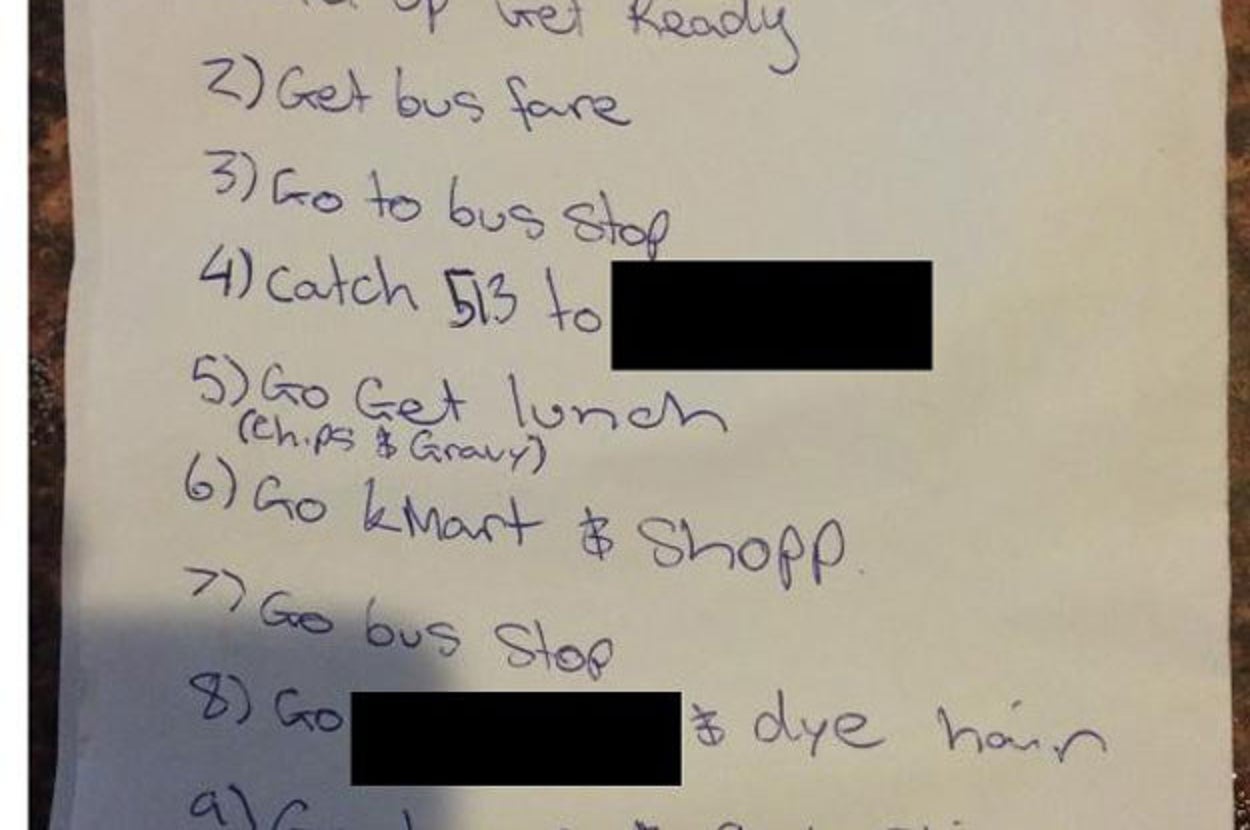 up Get Ready
2) Get bus fare
3) Go to bus Stop
4) Catch 513 to
5) Go Get lunch
(Chips & Gravy)
6) Go kMart & Shopp.
7) Go bus Stop
8) Go & dye hair
9)